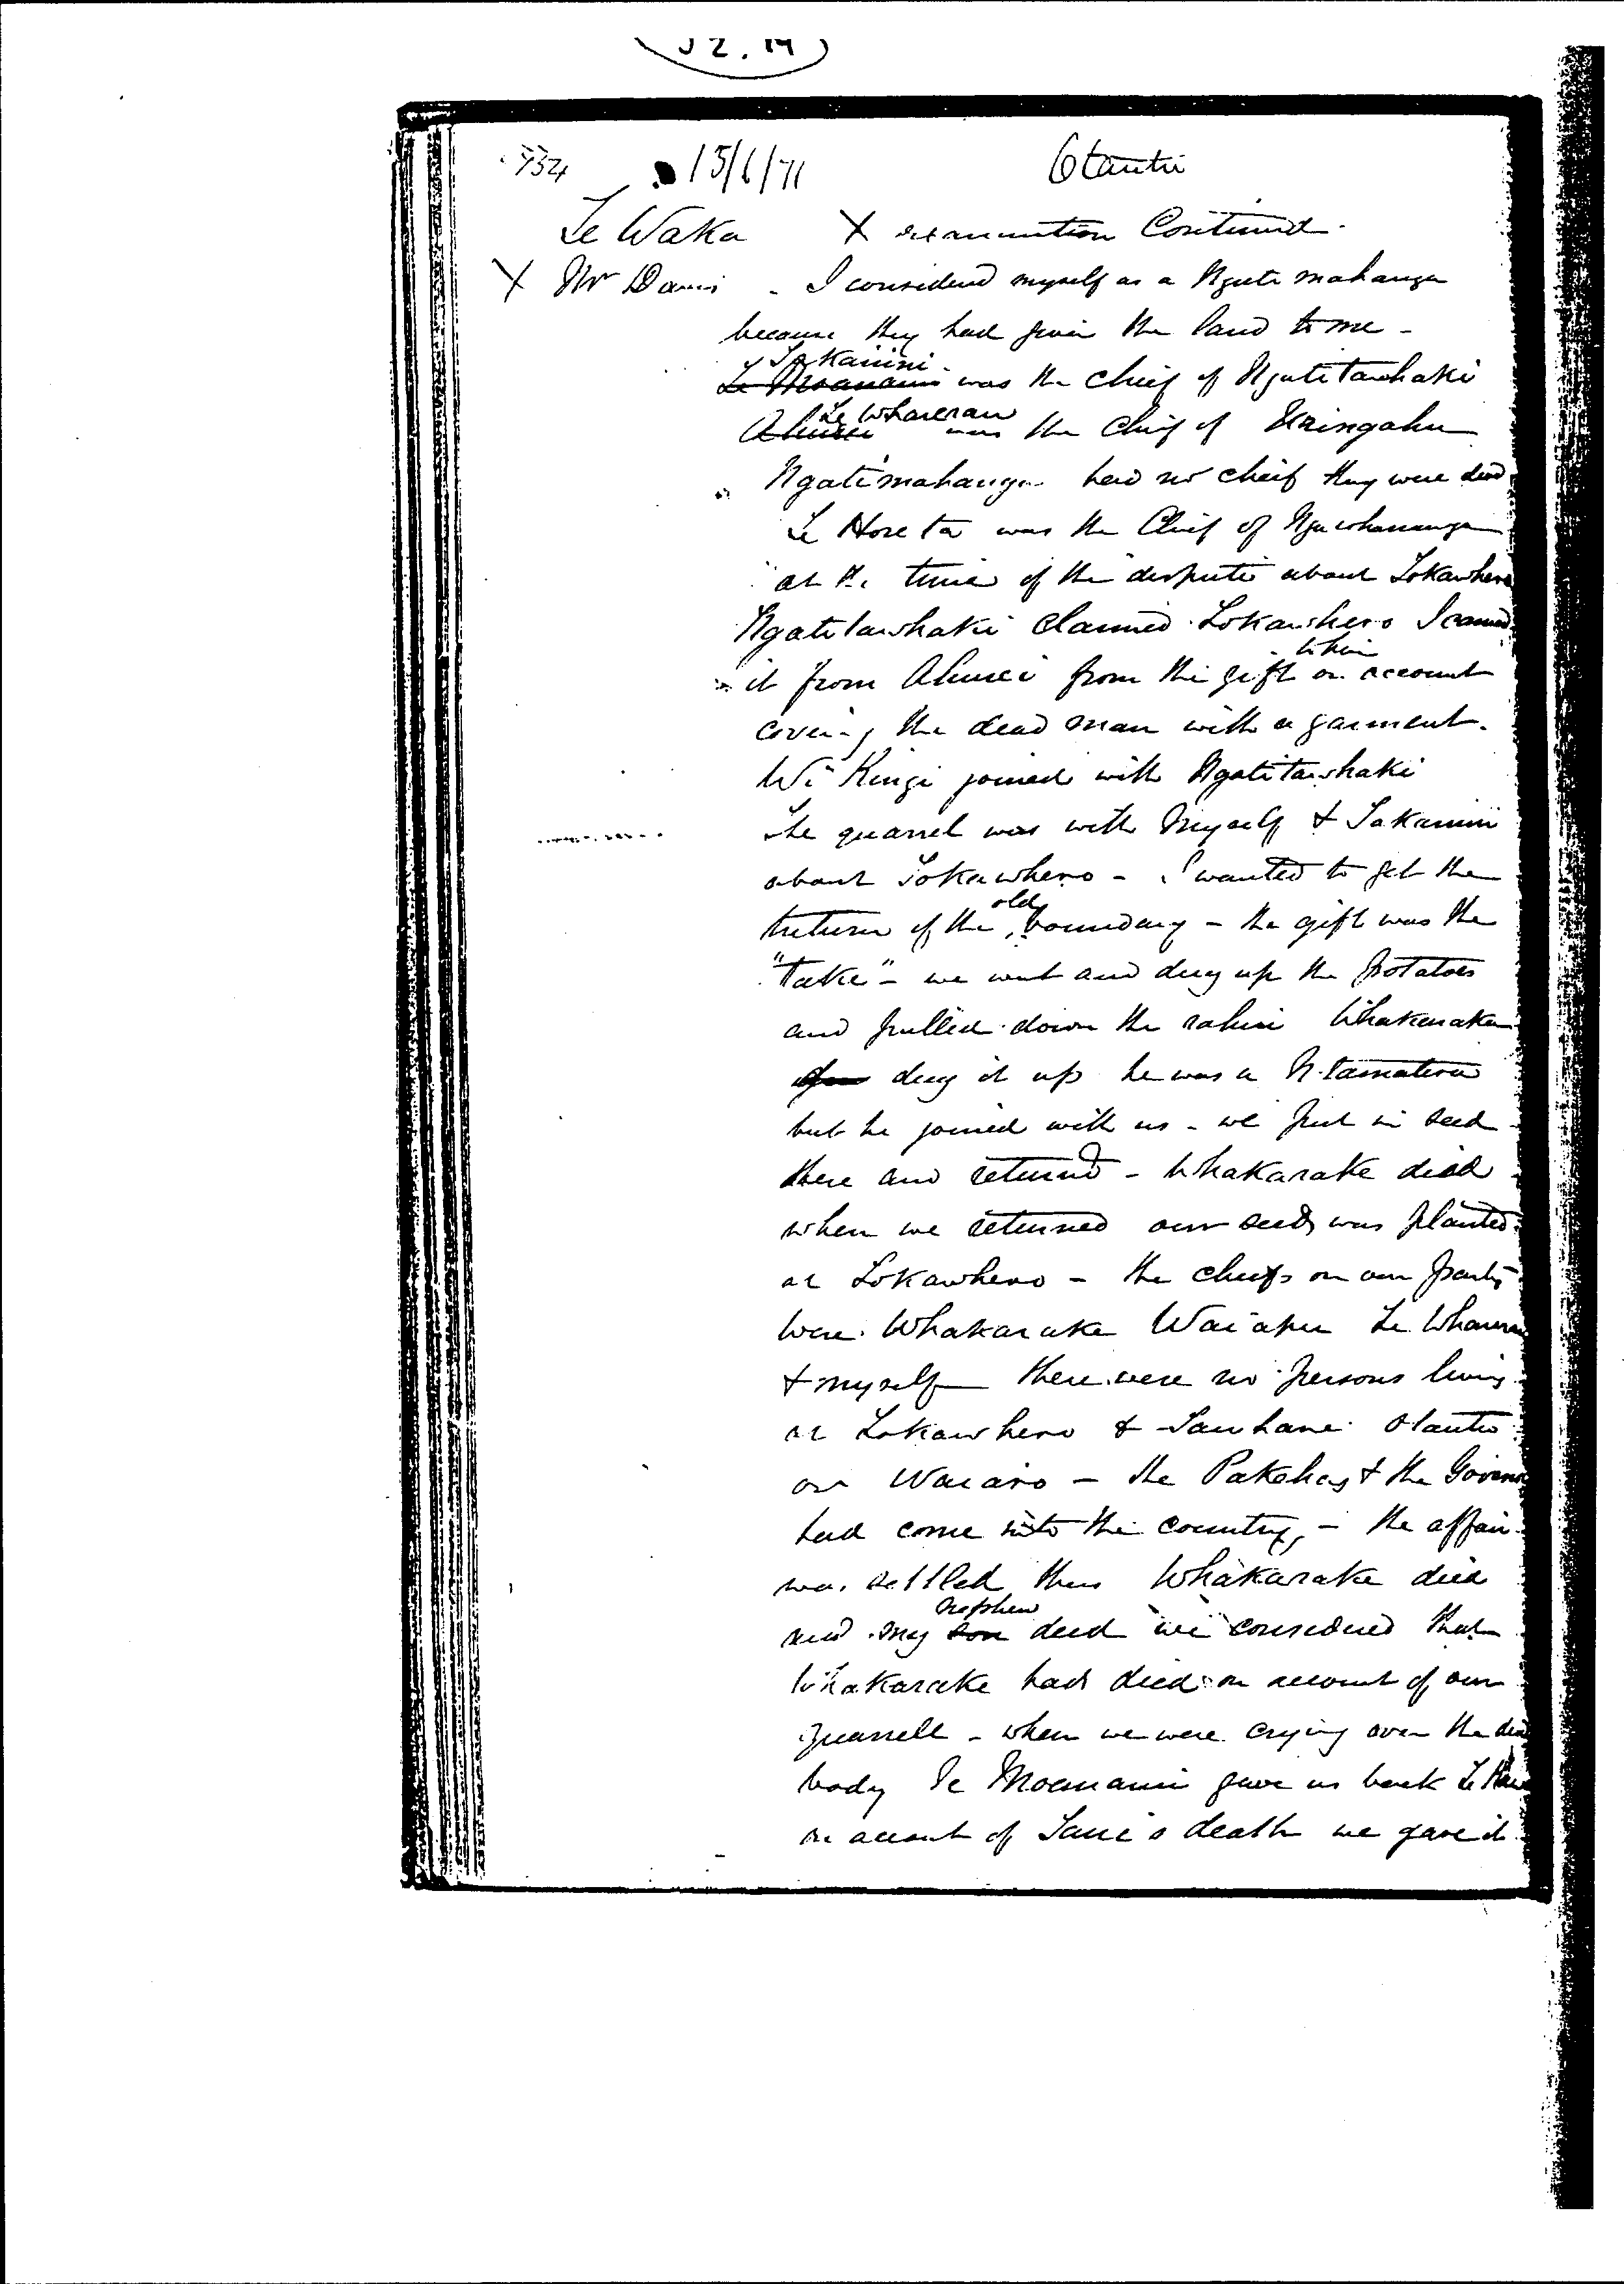 15/6/71 Otautu
Te Waka X examination Continued.
X Mr Davis - I considered myself as a Ngati mahanga
because they had given the land to me -
Takanini
Te Moananui was the chief of Ngatitawhaki
Te Wharerau
Ahurei was the chief of Uringahu
Ngatimahanga had no chief they were dead
Te Horeta was the Chief of Ngawhanaunga
at the time of the dispute about Tokawhero
Ngatitawhaki claimed Tokawhero I
to him
it from Ahurei from the gift on account
covering the dead man with a garment.
Wi Kingi joined with Ngatitawhaki
The quarrel was with Myself & Takanini
about Tokawhero - I wanted to get the
old
return of the boundary - the gift was the
"take" - we went and dug up the potatoes
and pulled down the rahui Whakarake
dug it up he was a N. tamatera
but he joined with us - we put in seed
there and returned - Whakarake died
when we returned our seed was planted
at Tokawhero - the chiefs on our party
were Whakarake Waiapu Te Wharerau
& myself there were no persons living
at Tokawhero & Otautu
or Waiaro - the Pakehas & the Governor
had come into the country, - the affair
was settled thus Whakarake died
nephew
and my son died we considered that
Whakarake had died on account of our
quarrell - when we were crying over the dead
body Te Moananui gave us back Te
on account of death we gave it